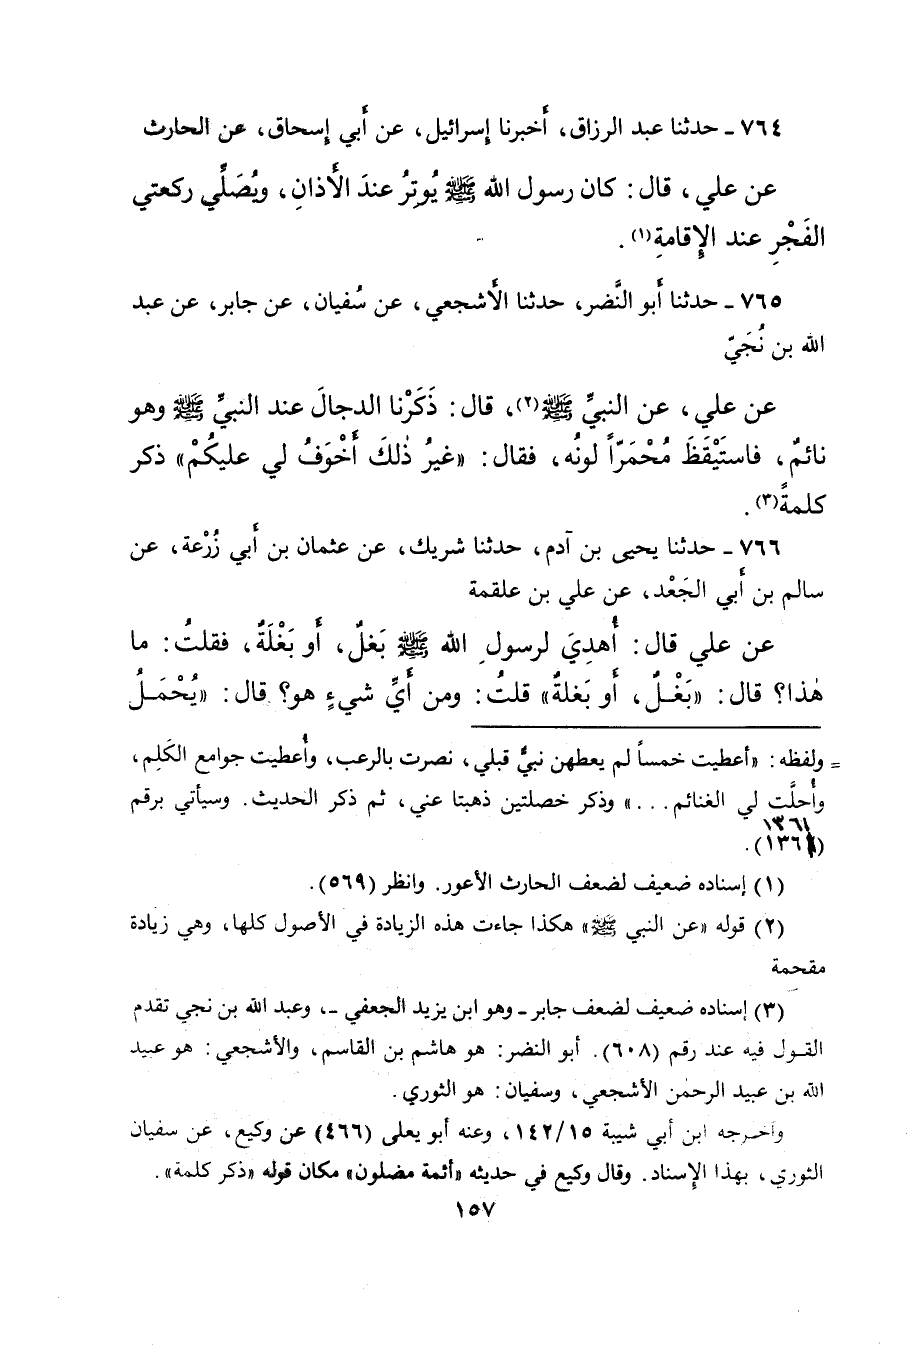 ٧٦٤ ـ حدثنا عبد الرزاق، أخبرنا إسرائيل، عن أبي إسحاق، عن الحارث
عن علي، قال: كان رسول الله ﷺ يُوتِرُ عندَ الأذانِ، ويُصَلِّي ركعتي
الفَجْرِ عند الإِقامةِ(١).
٧٦٥ ـ حدثنا أبو النَّضر، حدثنا الأشجعي، عن سُفيان، عن جابر، عن عبد
الله بن نُجَيّ
عن علي، عن النبيِّ ﷺ(٢)، قال: ذَكَرْنا الدجالَ عند النبيِّ ﷺ وهو
نائمٌ، فاستَيْقَظَ مُحْمَرّاً لونُه، فقال: «غيرُ ذٰلكَ أَخْوَفُ لي عليكُمْ» ذكر
كلمةً(٣).
٧٦٦ ـ حدثنا يحيى بن آدم، حدثنا شريك، عن عثمان بن أبي زُرْعة، عن
سالم بن أبي الجَعْد، عن علي بن علقمة
عن علي قال: أُهدِيَ لرسولِ الله ﷺ بَغلٌ، أو بَغْلَةٌ، فقلتُ: ما
هٰذا؟ قال: «بَغْلٌ، أو بَغلةٌ» قلتُ: ومن أيِّ شيءٍ هو؟ قال: «يُحْمَلُ
= ولفظه: «أعطيت خمساً لم يعطهن نبيٌّ قبلي، نصرت بالرعب، وأُعطيت جوامع الكَلِم،
وأُحلَّت لي الغنائم...» وذكر خصلتين ذهبتا عني، ثم ذكر الحديث. وسيأتي برقم
١٣٦١
(١٣٦١).
(١) إسناده ضعيف لضعف الحارث الأعور. وانظر (٥٦٩).
(٢) قوله «عن النبي ﷺ» هكذا جاءت هذه الزيادة في الأصول كلها، وهي زيادة
مقحمة
(٣) إسناده ضعيف لضعف جابر ـ وهو ابن يزيد الجعفي ـ، وعبد الله بن نجي تقدم
القول فيه عند رقم (٦٠٨). أبو النضر: هو هاشم بن القاسم، والأشجعي: هو عبيد
الله بن عبيد الرحمٰن الأشجعي، وسفيان: هو الثوري.
وأخرجه ابن أبي شيبة ١٤٢/١٥، وعنه أبو يعلى (٤٦٦) عن وكيع، عن سفيان
الثوري، بهذا الإسناد. وقال وكيع في حديثه «أئمة مضلون» مكان قوله «ذكر كلمة».
١٥٧